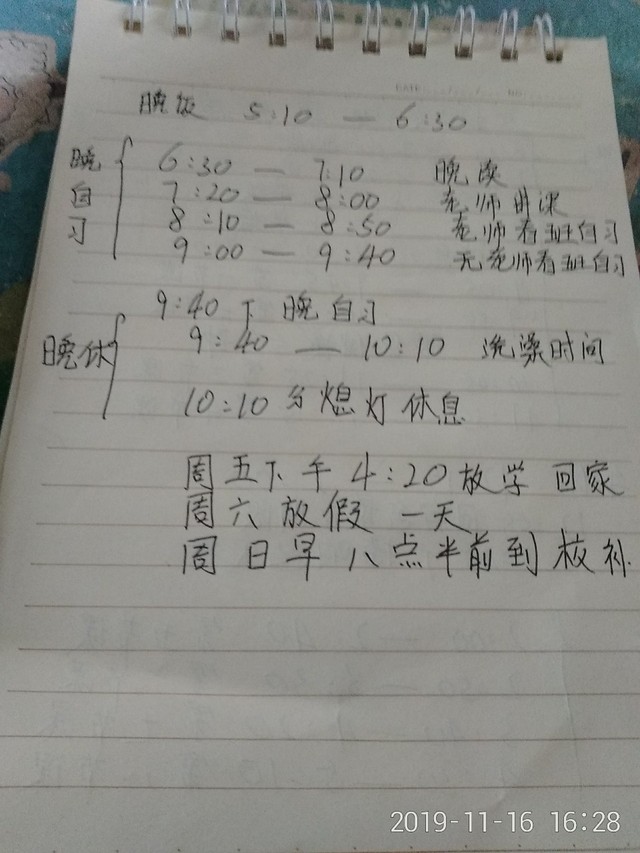 晚饭 5:10 — 6:30
晚自习
6:30 — 7:10 晚读
7:20 — 8:00 老师讲课
8:10 — 8:50 老师看班自习
9:00 — 9:40 无老师看班自习
9:40 下晚自习
晚休 9:40 — 10:10 洗澡时间
10:10分熄灯休息
周五下午4:20放学回家
周六放假一天
周日早八点半前到校补
2019-11-16 16:28